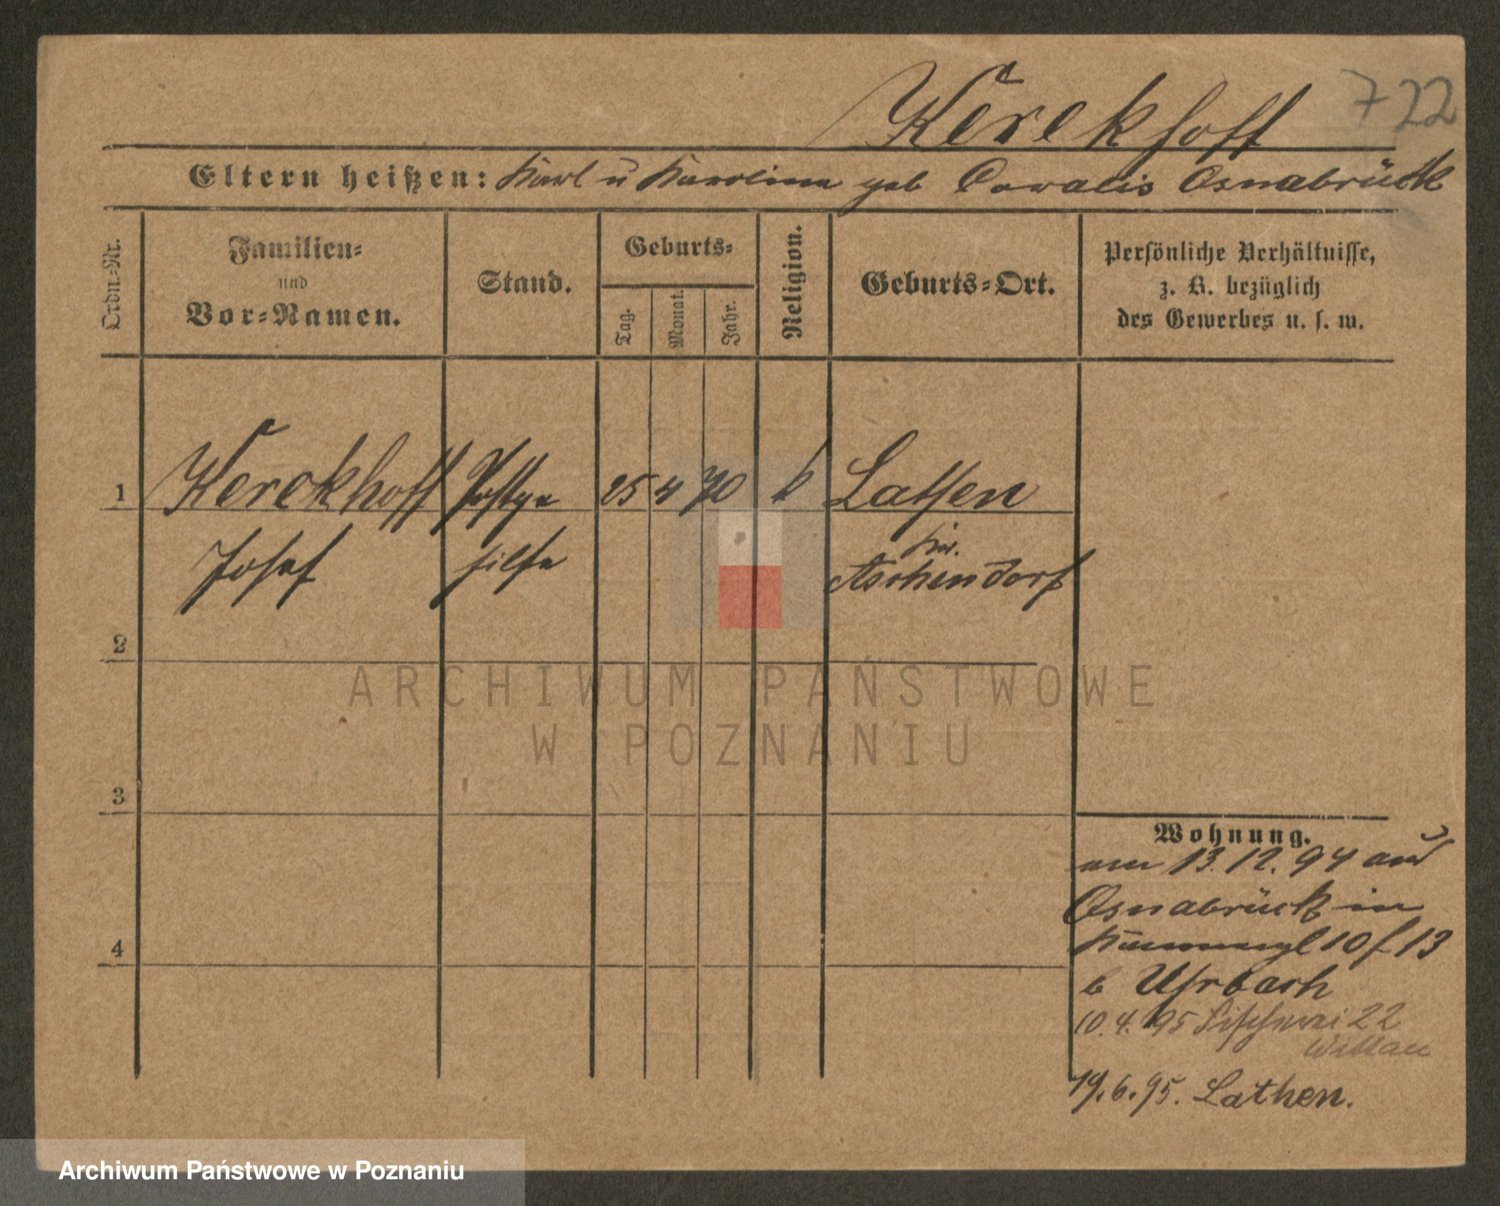 722
Kerckhoff
Eltern heißen: Karl u Karolina geb Osnabrück
Ordn.=Nr.
Familien=
und
Vor=Namen.
Stand.
Geburts=
Tag.
Monat.
Jahr.
Religion.
Geburts=Ort.
Persönliche Verhältnisse,
z. B. bezüglich
des Gewerbes u. s. w.
1 Kerckhoff Postge 25 4 70 k Lathen
Josef hilfe Kr.
Aschendorf
2
3
4
ARCHIWUM PAŃSTWOWE
W POZNANIU
Wohnung.
am 13.12.94 aus
Osnabrück in
10 / 13
b Uhrbach
10.4.95 22
19.6.95. Lathen.
Archiwum Państwowe w Poznaniu